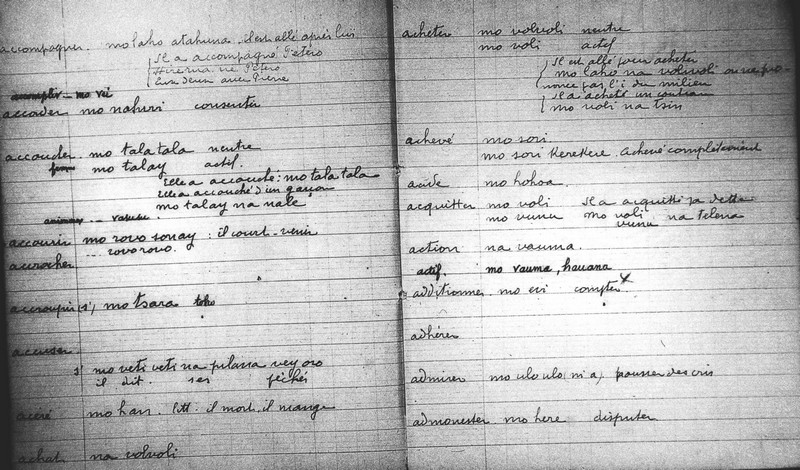 accompagner. mo laho atahuna. il est allé après lui
Il a accompagné Petero
Hirema na Petero
Eux deux avec Pierre
accomplir - mo vei
accorder mo nahuri consentir
accoucher. mo tala tala neutre
mo talay actif.
Elle a accouché: mo tala tala
Elle a accouché d'un garçon
mo talay na nale
animer -
accourir mo rovo sonay : il court - venir
rovorovo.
accrocher
accroupir (s') mo tsara toho
accuser
s' mo veti veti na pulana vey oro
il dit. ses péchés
acéré mo han. litt. il mord, il mange
achat na volvoli
acheter mo volvoli neutre
mo voli actif
Il est allé pour acheter
mo laho na volivoli ou ne pro-
nonce pas l'i du milieu
Il a acheté un couteau
mo voli na tsin
achevé mo sori
mo sori Kerekere. Achevé complètement
acide mo hohoa.
acquitter mo voli Il a acquitté sa dette
mo vunu mo voli na telena
vunu
action na vauma.
actif. mo vauma, hauana
additionner mo evi compter x
adhérer
admirer mo ulo ulo (ni a) pousser des cris
admonester mo here disputer